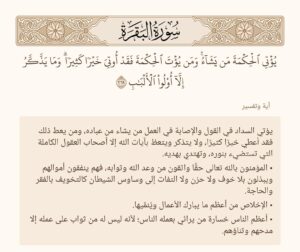 سُورَةُ البَقَرَةِ
يُؤْتِى ٱلْحِكْمَةَ مَن يَشَآءُ ۚ وَمَن يُؤْتَ ٱلْحِكْمَةَ فَقَدْ أُوتِىَ خَيْرًا كَثِيرًا ۗ وَمَا يَذَّكَّرُ
إِلَّآ أُو۟لُوا۟ ٱلْأَلْبَـٰبِ ٢٦٩
آية وتفسير
يؤتي السداد في القول والإصابة في العمل من يشاء من عباده، ومن يعط ذلك
فقد أعطي خيرًا كثيرًا، ولا يتذكر ويتعظ بآيات الله إلا أصحاب العقول الكاملة
التي تستضيء بنوره، وتهتدي بهديه.
• المؤمنون بالله تعالى حقًّا واثقون من وعد الله وثوابه، فهم ينفقون أموالهم
ويبذلون بلا خوف ولا حزن ولا التفات إلى وساوس الشيطان كالتخويف بالفقر
والحاجة.
• الإخلاص من أعظم ما يبارك الأعمال ويُنمِّيها.
• أعظم الناس خسارة من يرائي بعمله الناس؛ لأنه ليس له من ثواب على عمله إلا
مدحهم وثناؤهم.